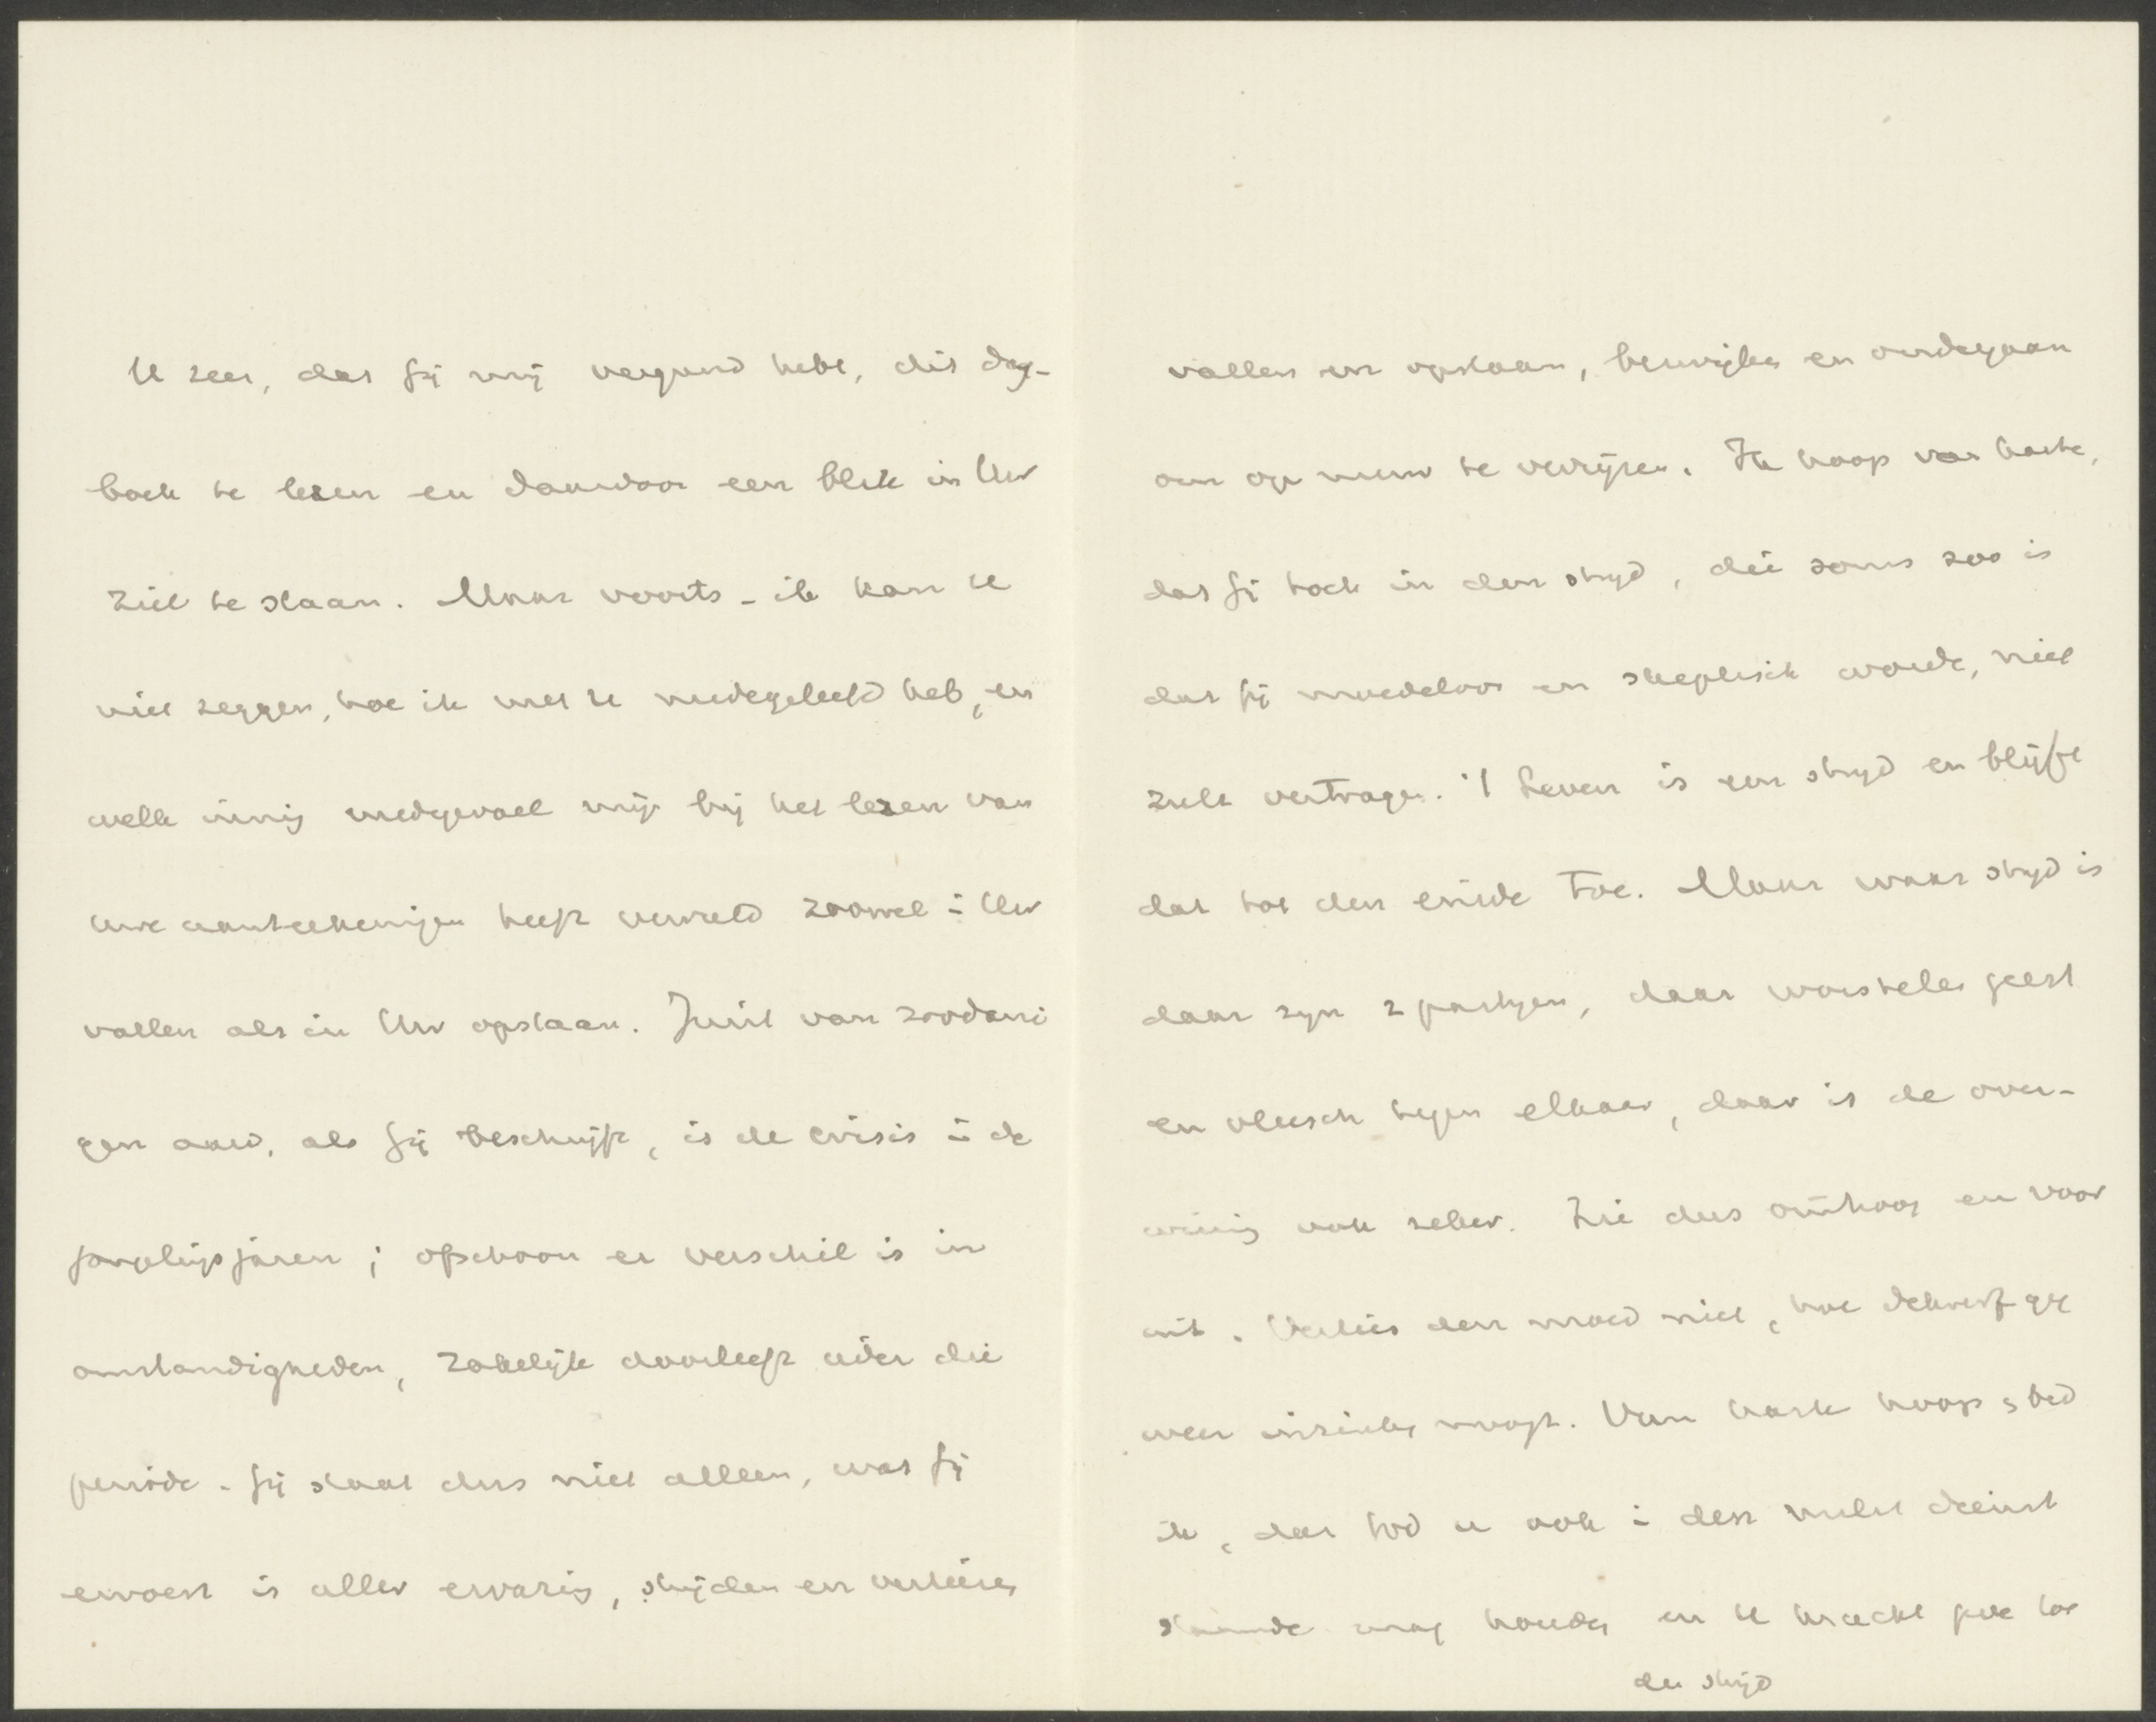 U zeer, dat gij mij vergund hebt, dit dag-
boek te lezen en daardoor een blik in Uw
ziel te slaan. Maar voorts - ik kan U
niet zeggen, hoe ik met U medegeleefd heb, en
welk innig medegevoel mij bij het lezen van
Uwe aanteekeningen heeft vervuld zoowel in Uw
vallen als in Uw opstaan. Juist van zoodani
gen aard, als gij beschrijft, is de crisis in de
jongelingsjaren; ofschoon er verschil is in
omstandigheden, zakelijk doorleeft ieder die
periode. Gij staat dus niet alleen, wat gij
ervoert is aller ervaring, strijden en verliezen
vallen en opstaan, bezwijken en ondergaan
om op nieuw te verrijzen. Ik hoop van harte,
dat gij toch in den strijd, die soms zoo is
dat gij moedeloos en skeptisch wordt, niet
zult vertragen. 't Leven is een strijd en blijft
dat tot den einde toe. Maar waar strijd is
daar zijn 2 partijen, daar worstelen geest
en vleesch tegen elkaar, daar is de over-
winning ook zeker. Zie dus omhoog en voor
uit. Verlies den moed niet, hoe dikwerf gij
weer inzinken moogt. Van harte hoop en bid
ik, dat God u ook in den militt dienst
staande mag houden en U kracht geve tot
den strijd